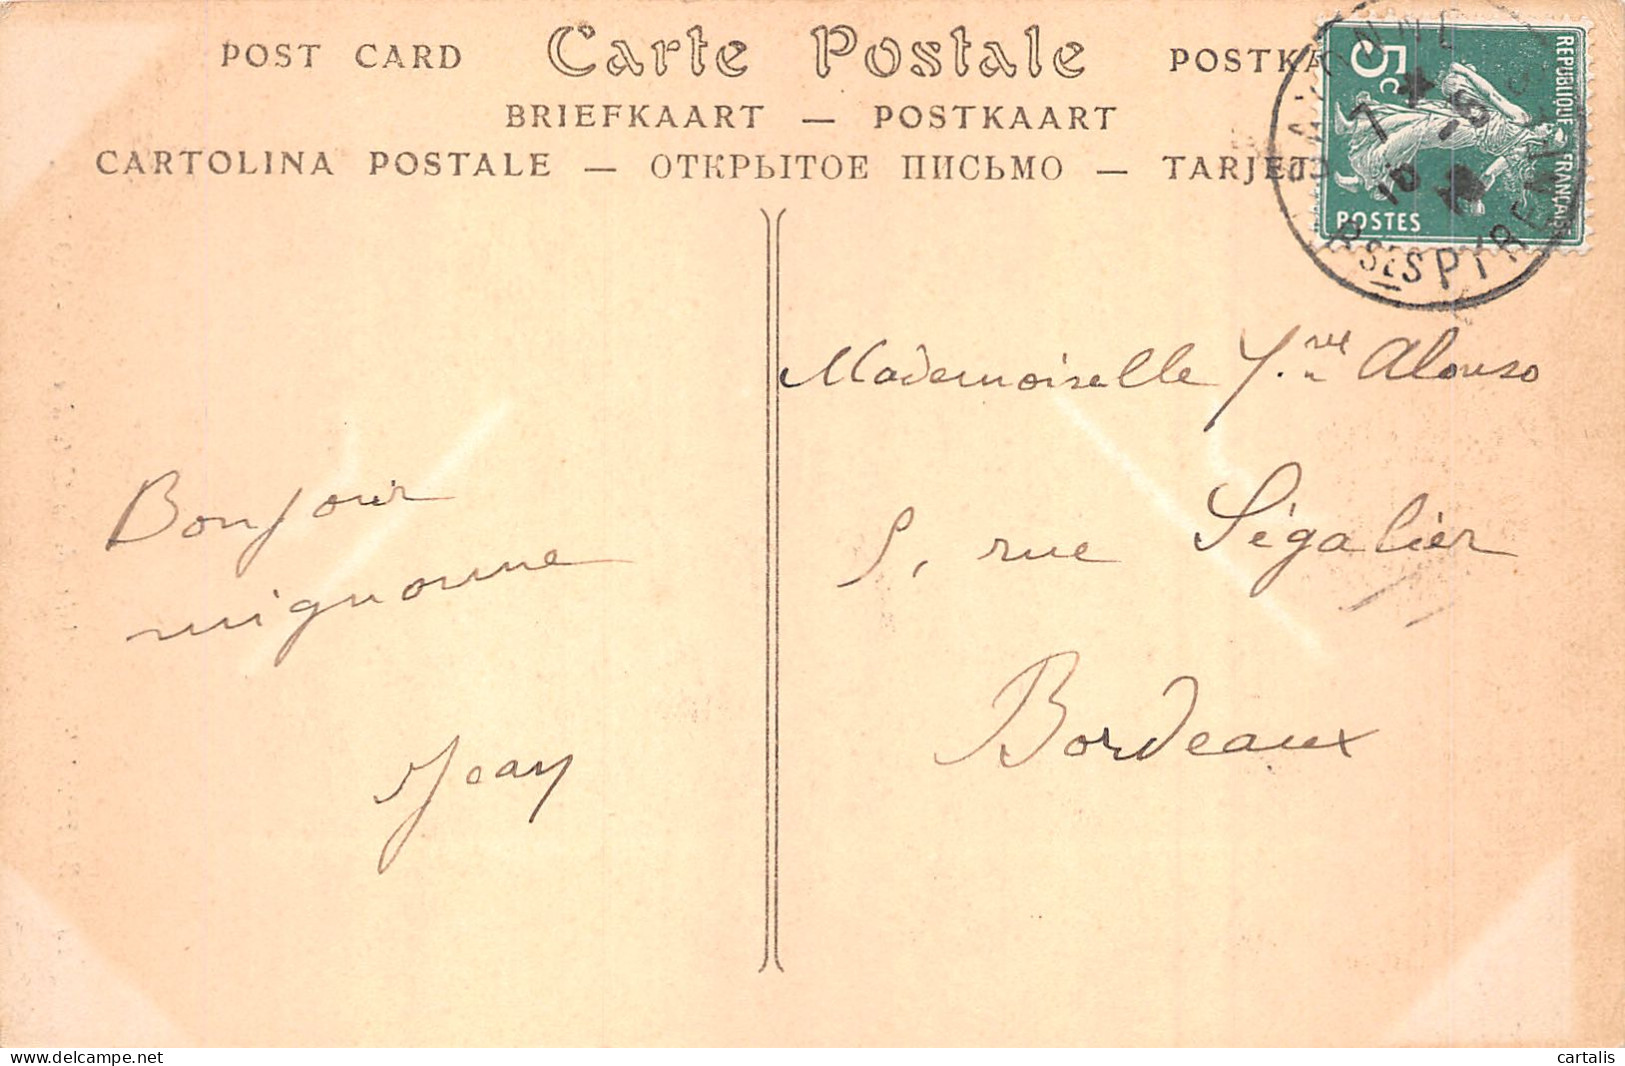 POST CARD Carte Postale POSTKA
BRIEFKAART — POSTKAART
CARTOLINA POSTALE — ОТКРЫТОЕ ПИСЬМО — TARJE
REPUBLIQUE FRANÇAISE
5c
POSTES
BAYONNE
Bses PYREN
Mademoiselle Y. Alonso
5, rue Ségalier
Bordeaux
Bonjour
mignonne
Jean
www.delcampe.net
cartalis